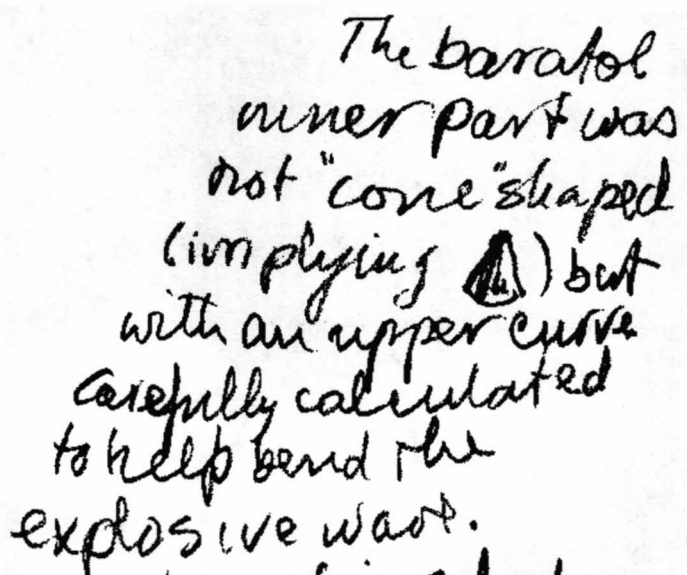 The baratol
inner part was
not "cone" shaped
(implying ) but
with an upper curve
carefully calculated
to help bend the
explosive wave.